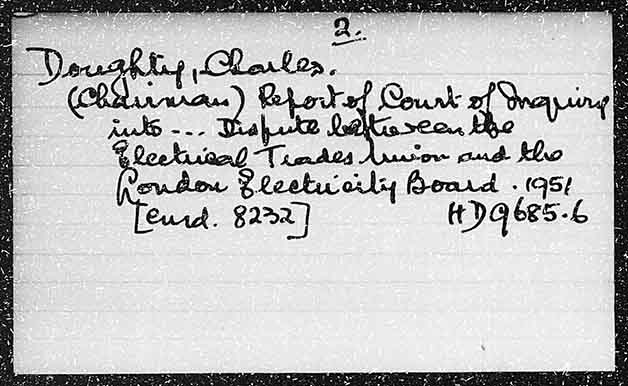 2.
Doughty, Charles.
(Chairman) Report of Court of Inquiry
into --- Dispute between the
Electrical Trades Union and the
London Electricity Board . 1951
[cmd. 8232] HD9685.6